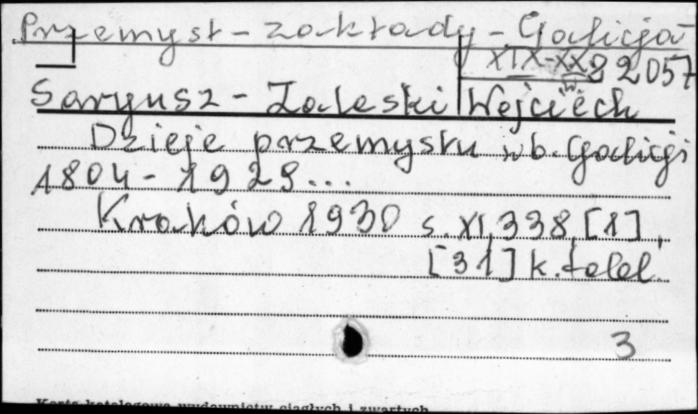 Przemysł - zakłady - Galicja
XIX-XX w
22057
Saryusz - Zaleski Wojciech
Dzieje przemysłu w b. Galicji
1804 - 1929...
Kraków 1930 s. XI, 338, [1],
[31] k. tabl.
3
Karta katalogowa wydawnictw ciągłych i zwartych